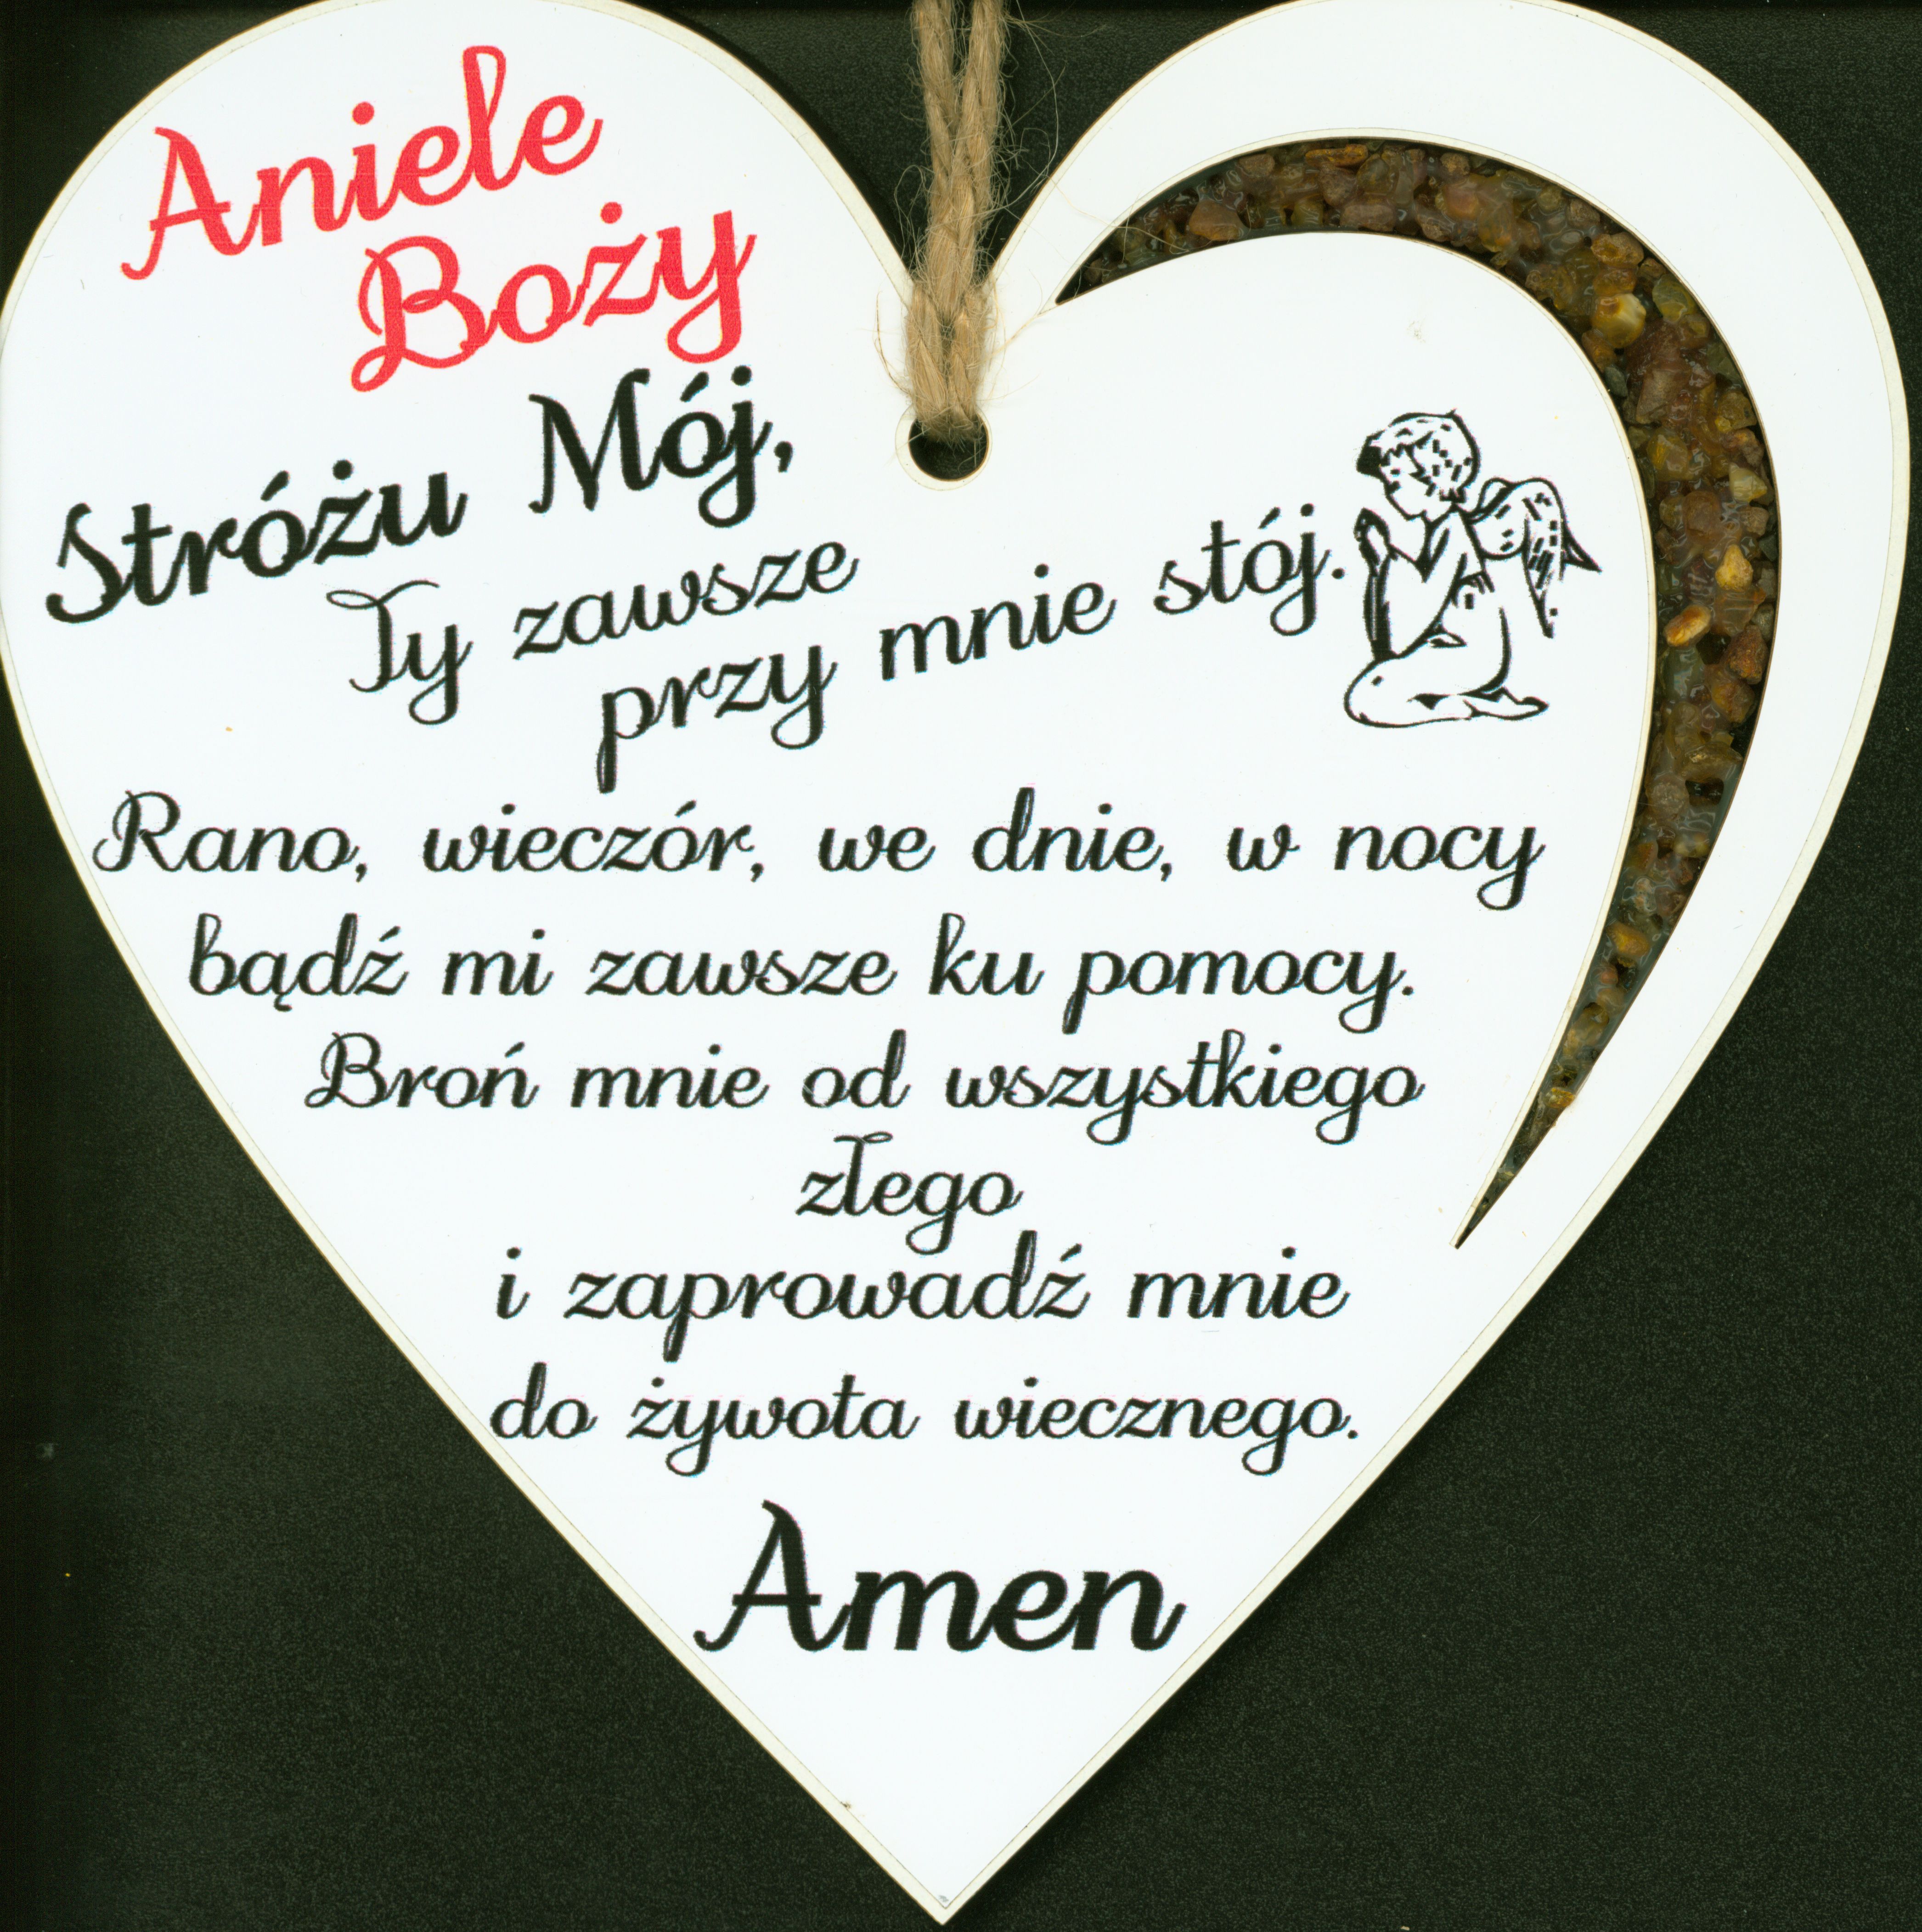 Aniele
Boży
Stróżu Mój,
Ty zawsze
przy mnie stój.
Rano, wieczór, we dnie, w nocy
bądź mi zawsze ku pomocy.
Broń mnie od wszystkiego
złego
i zaprowadź mnie
do żywota wiecznego.
Amen